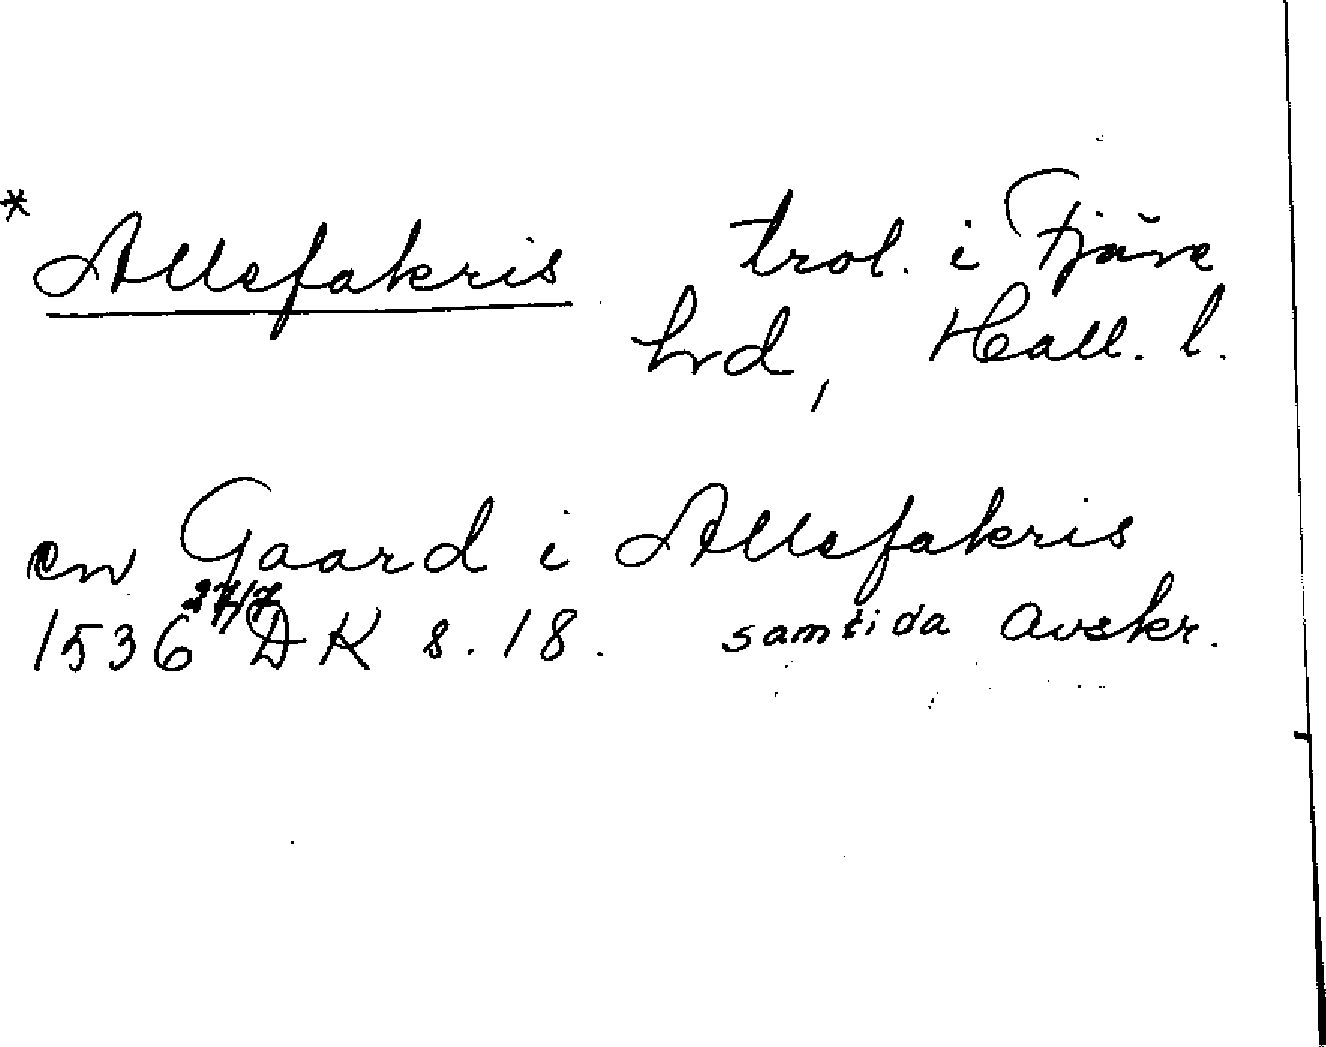 * Allefakris trol. i Fjäre
hrd, Hall. l.
en Gaard i Allefakris
1536 27/7 DK s. 18. samtida avskr.